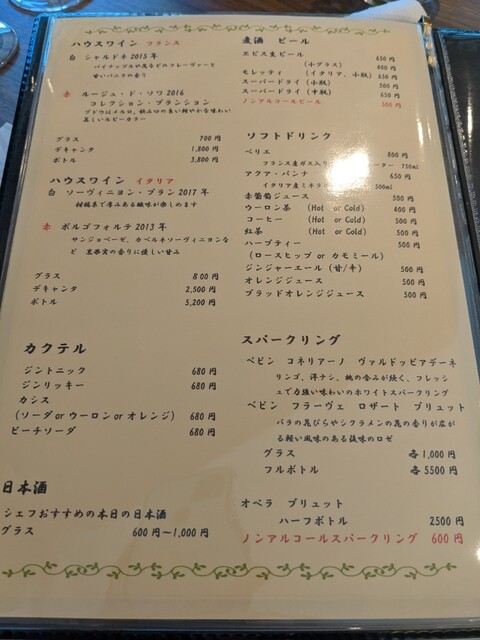 ハウスワイン フランス
白 シャルドネ 2015年
パイナップルや黄桃などのフレーヴァーと
甘いバニラの香り
赤 ルージュ・ド・ソワ 2016
コレクション・プランション
ブドウはメルロ、飲み口の良い軽やかな味わい
美しいルビーカラー
グラス 700円
デキャンタ 1,800円
ボトル 3,800円
ハウスワイン イタリア
白 ソーヴィニヨン・ブラン 2017年
柑橘系で厚みある酸味が楽しめます
赤 ボルゴフォルテ 2013年
サンジョベーゼ、カベルネソーヴィニヨンな
ど 黒果実の香りに優しい甘み
グラス 800円
デキャンタ 2,500円
ボトル 5,200円
カクテル
ジントニック 680円
ジンリッキー 680円
カシス
(ソーダ or ウーロン or オレンジ) 680円
ピーチソーダ 680円
日本酒
シェフおすすめの本日の日本酒
グラス 600円〜1,000円
麦酒 ビール
ヱビス生ビール 650円
(小グラス) 400円
モレッティ (イタリア、小瓶) 650円
スーパードライ(小瓶) 500円
スーパードライ(中瓶) 650円
ノンアルコールビール 500円
ソフトドリンク
ペリエ 800円
フランス産ガス入り ーター 750ml
アクア・パンナ 650円
イタリア産ミネラ 500ml
赤葡萄ジュース 500円
ウーロン茶 (Hot or Cold) 400円
コーヒー (Hot or Cold) 500円
紅茶 (Hot or Cold) 500円
ハーブティー 500円
(ローズヒップ or カモミール)
ジンジャーエール(甘/辛) 500円
オレンジジュース 500円
ブラッドオレンジジュース 500円
スパークリング
ベビン コネリアーノ ヴァルドッビアデーネ
リンゴ、洋ナシ、桃の含みが続く、フレッシ
ュで力強い味わいのホワイトスパークリング
ベビン フラーヴェ ロザート ブリュット
バラの花びらやシクラメンの花の香りが広が
る軽い風味のある後味のロゼ
グラス 各1,000円
フルボトル 各5500円
オペラ ブリュット
ハーフボトル 2500円
ノンアルコールスパークリング 600円